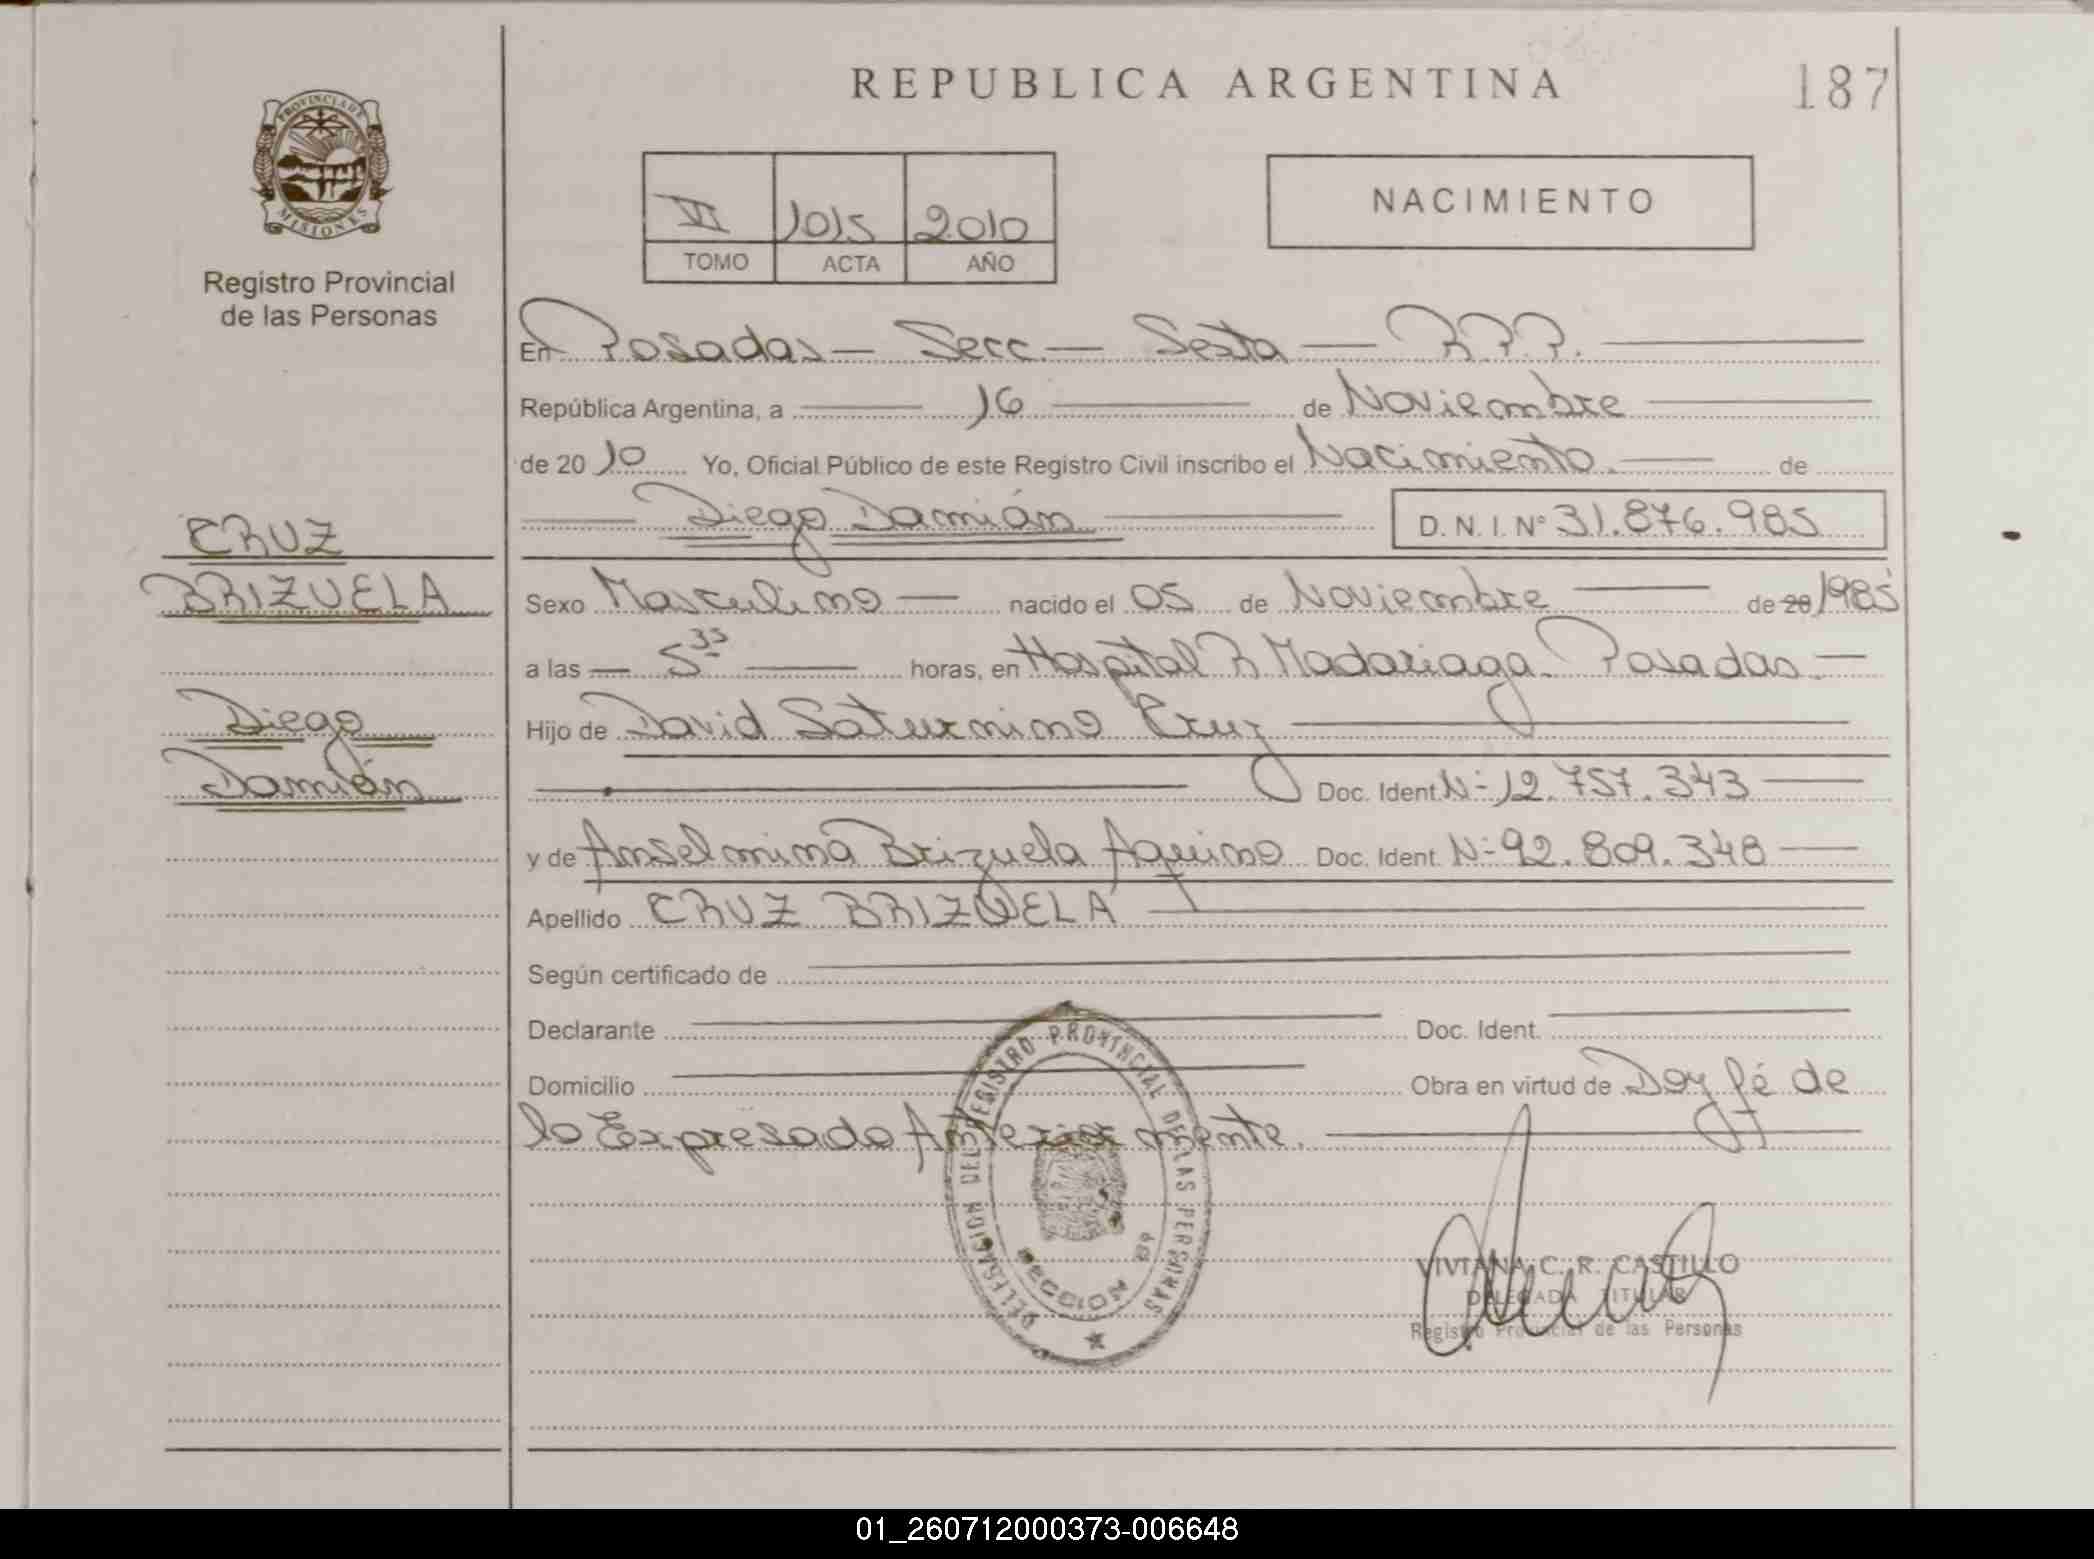 REPUBLICA ARGENTINA
187
PROVINCIA DE
MISIONES
Registro Provincial
de las Personas
VI 1015 2010
TOMO ACTA AÑO
NACIMIENTO
En Posadas — Secc. — Sexta — R.P.P.
República Argentina, a 16 de Noviembre
de 2010 Yo, Oficial Público de este Registro Civil inscribo el Nacimiento. de
Diego Damián D. N. I. N° 31.876.985
CRUZ
BRIZUELA
Diego
Damián
Sexo Masculino — nacido el 05 de Noviembre de 20 1985
a las — 5 35 horas, en Hospital R. Madariaga. Posadas. —
Hijo de David Saturnino Cruz
Doc. Ident. N- 12.757.343
y de Anselmina Brizuela Aquino Doc. Ident. N- 92.809.348
Apellido CRUZ BRIZUELA
Según certificado de
Declarante Doc. Ident.
Domicilio Obra en virtud de Doy fé de
lo Expresado Anteriormente.
DELEGACION DEL REGISTRO PROVINCIAL DE LAS PERSONAS
SECCION
VIVIANA C. R. CASTILLO
DELEGADA TITULAR
Registro Provincial de las Personas
01_260712000373-006648